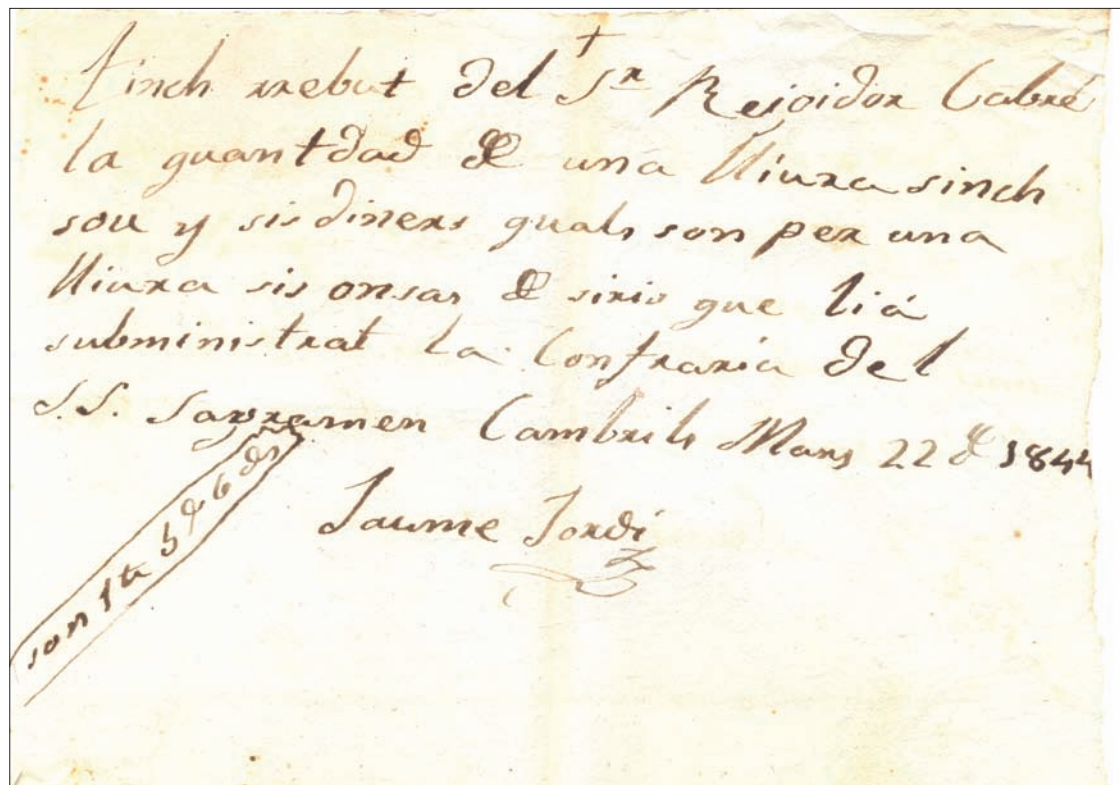 †
Tinch rrebut del Sr Rejoidor Cabré
la quantdad de una lliura sinch
sou y sis diners quals son per una
lliura sis onsas de siris que liá
subministrat la Confraria del
S.S. Sagramen Cambrils Mars 22 de 1844
Jaume Jordi
son 1 ₶ 5 s 6 ds